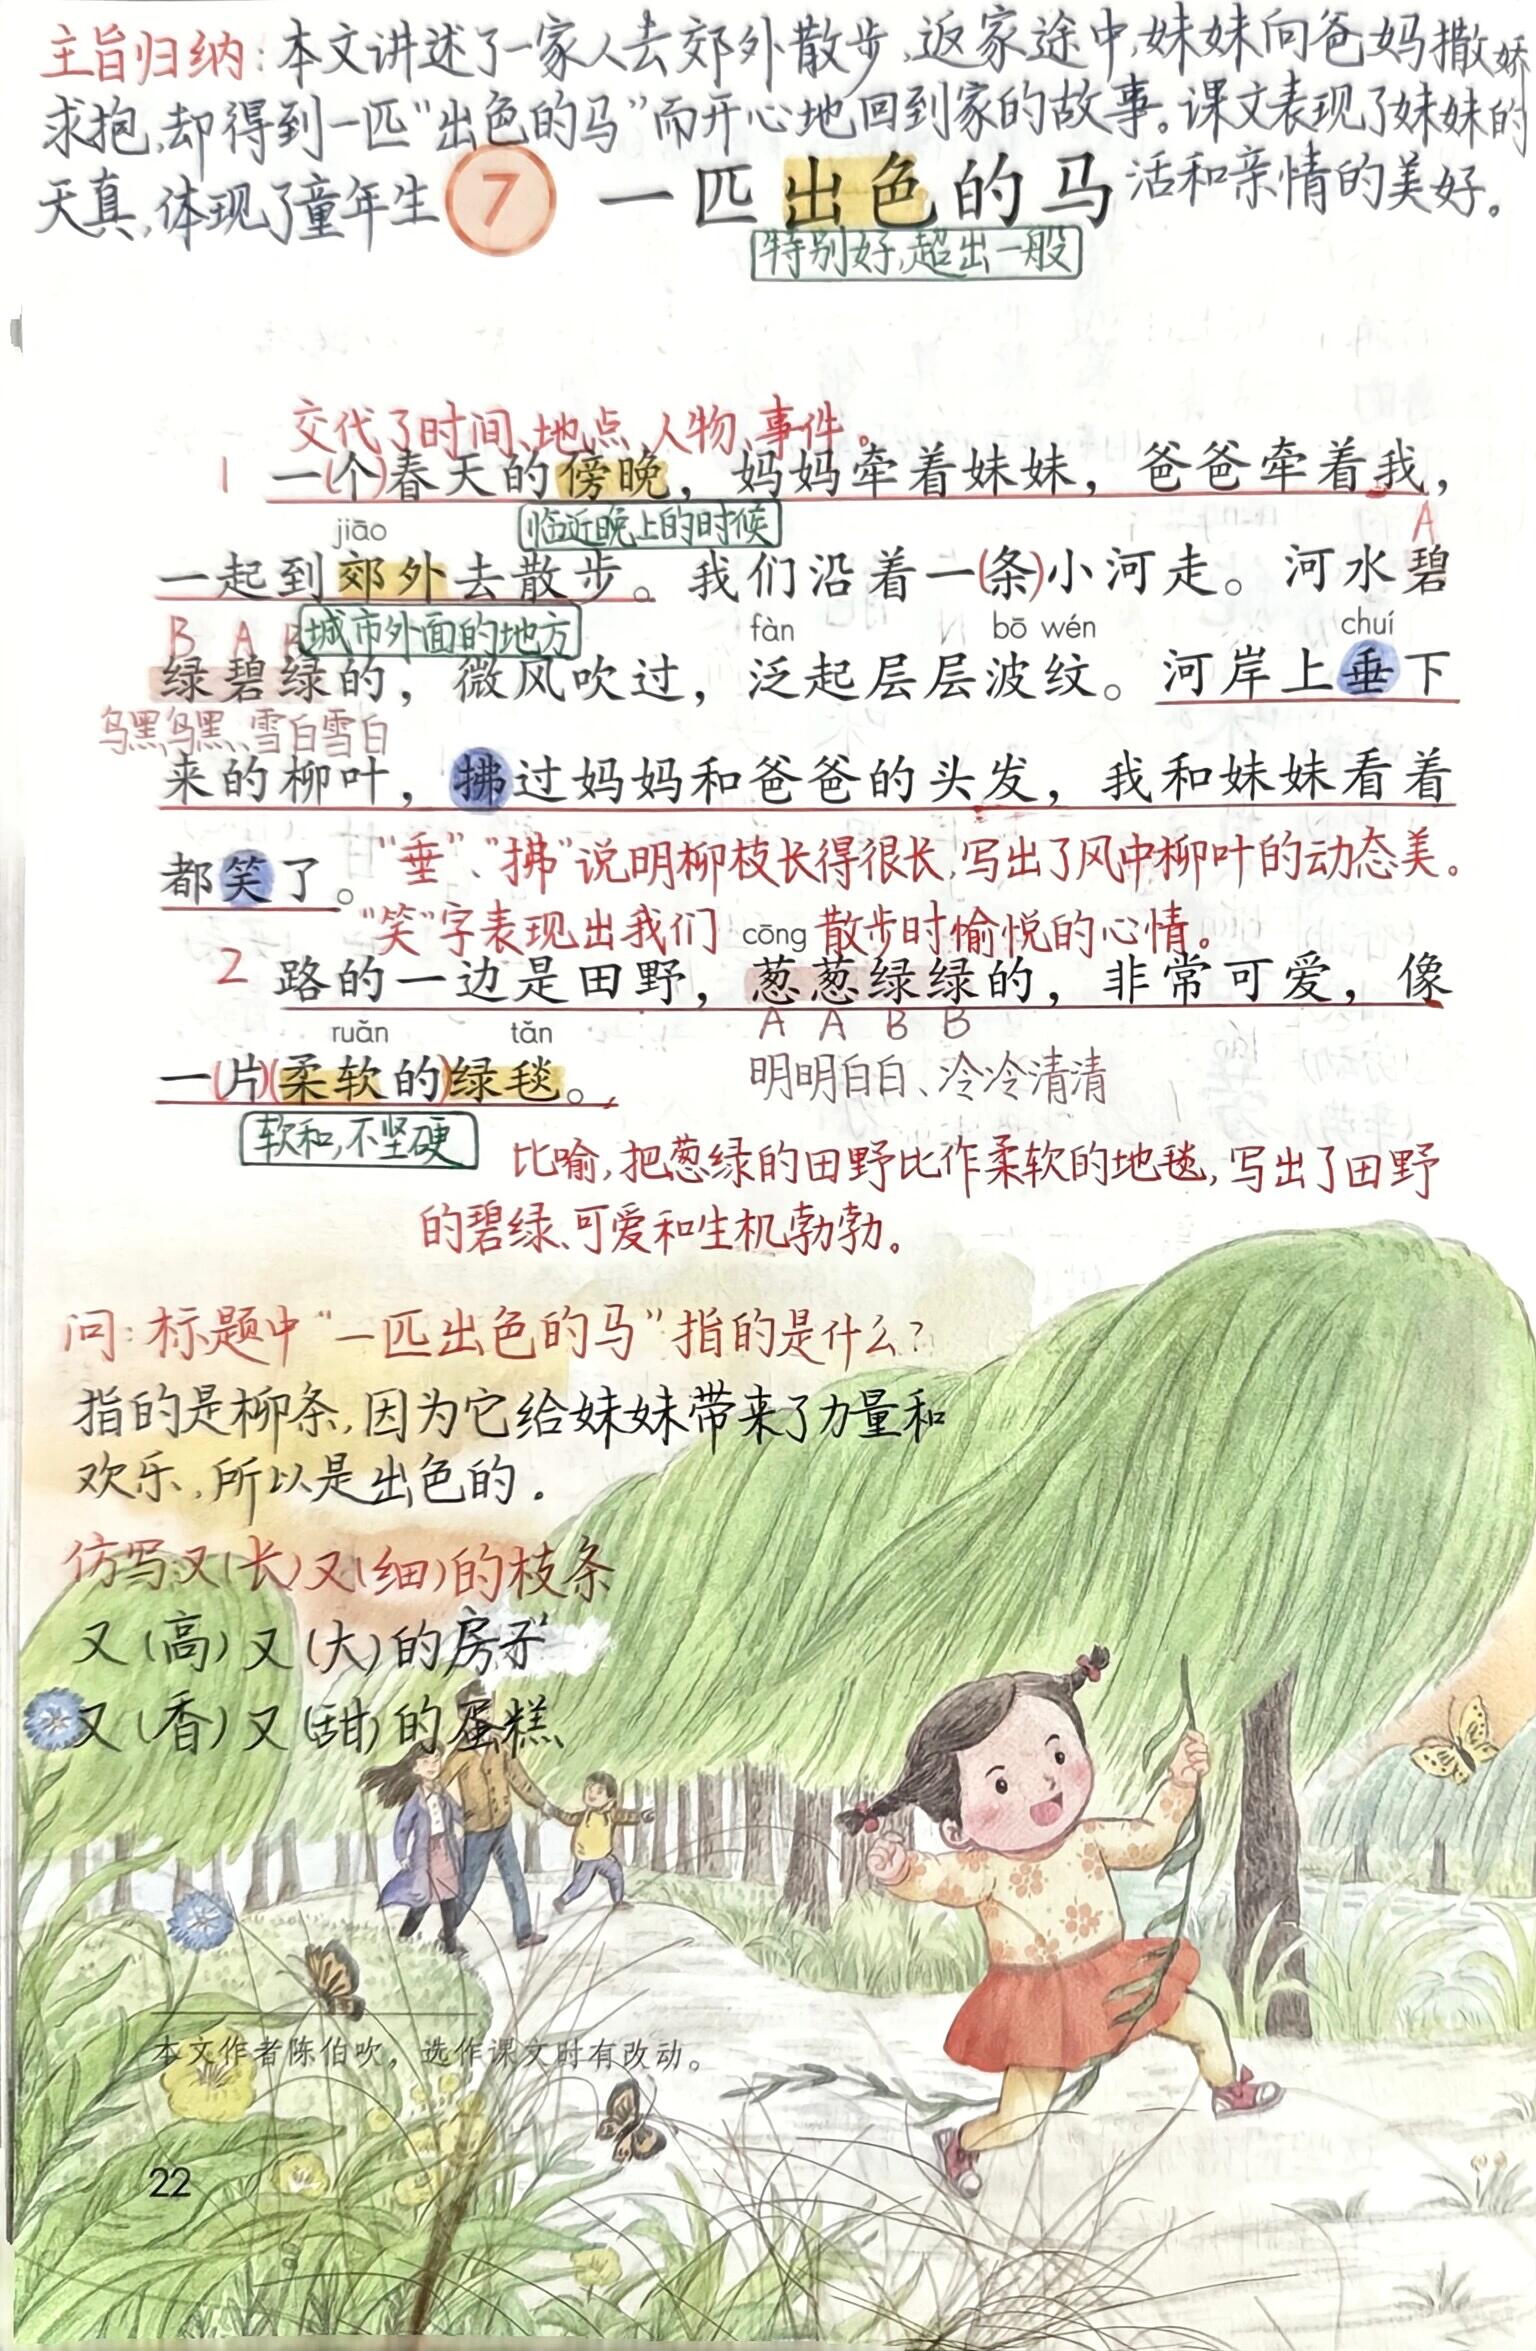 主旨归纳：本文讲述了一家人去郊外散步，返家途中，妹妹向爸妈撒娇
求抱，却得到一匹“出色的马”而开心地回到家的故事。课文表现了妹妹的
天真，体现了童年生活和亲情的美好。
7 一匹出色的马
特别好，超出一般
交代了时间、地点、人物、事件。
1 一(个)春天的傍晚，妈妈牵着妹妹，爸爸牵着我，
jiāo 临近晚上的时候 A
一起到郊外去散步。我们沿着一(条)小河走。河水碧
B A B 城市外面的地方 fàn bō wén chuí
绿碧绿的，微风吹过，泛起层层波纹。河岸上垂下
乌黑乌黑、雪白雪白
来的柳叶，拂过妈妈和爸爸的头发，我和妹妹看着
都笑了。 “垂”、“拂”说明柳枝长得很长，写出了风中柳叶的动态美。
“笑”字表现出我们散步时愉悦的心情。
cōng
2 路的一边是田野，葱葱绿绿的，非常可爱，像
ruǎn tǎn A A B B
一(片)(柔软的)绿毯。 明明白白、冷冷清清
软和，不坚硬
比喻，把葱绿的田野比作柔软的地毯，写出了田野
的碧绿、可爱和生机勃勃。
问：标题中“一匹出色的马”指的是什么？
指的是柳条，因为它给妹妹带来了力量和
欢乐，所以是出色的。
仿写:又(长)又(细)的枝条
又(高)又(大)的房子
又(香)又(甜)的蛋糕
本文作者陈伯吹，选作课文时有改动。
22